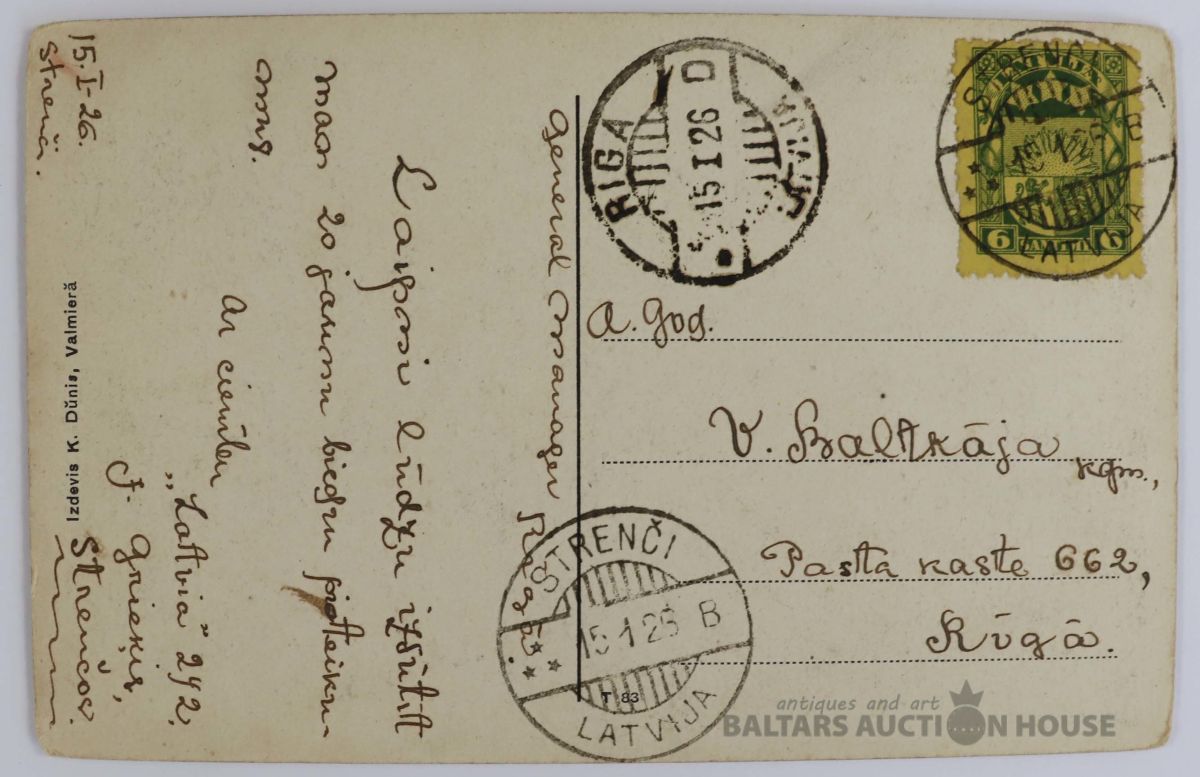 15.I-26.
Strenči.
Laipni lūdzu izsūtīt
man 20 jaunu biedru pieteiku-
mus.
Ar cieņu
„Latvia" 292,
J. Grieķis,
Strenčos.
Izdevis K. Dūnis, Valmierā
General Manager Rīgā.
T 83
RIGA
15 I 26 D
LATVIJA
STRENČI
15 1 26 B
LATVIJA
LATVIJA
6 6
STRENČI
B
LATVIJA
A. God.
V. Baltkāja kgm.,
Pasta kaste 662,
Rīgā.
antiques and art
BALTARS AUCTION HOUSE